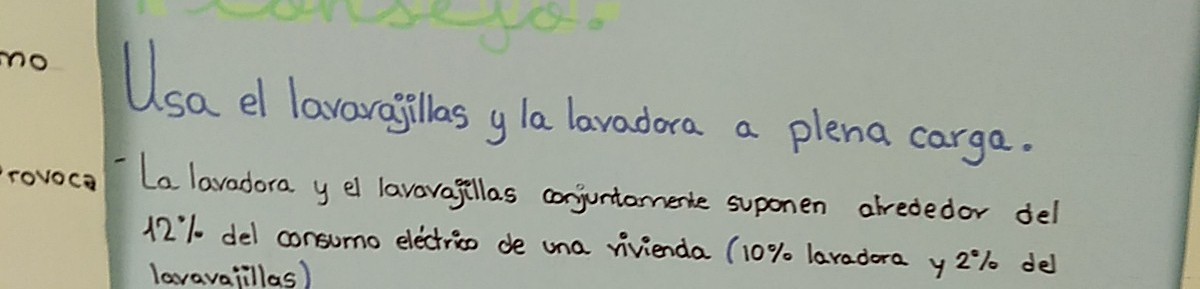 Consejo.
mo
Usa el lavavajillas y la lavadora a plena carga.
rovoca
- La lavadora y el lavavajillas conjuntamente suponen alrededor del
12% del consumo eléctrico de una vivienda (10% lavadora y 2% del
lavavajillas)